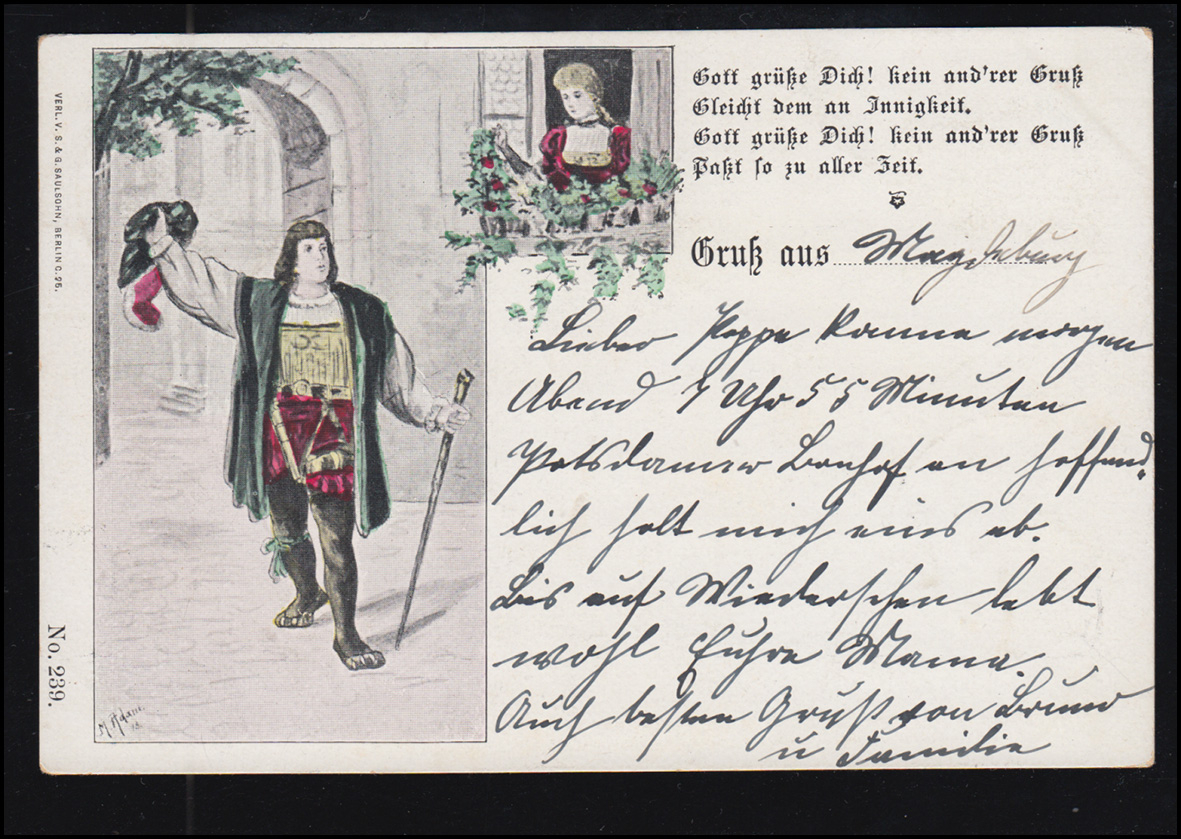 Gott grüße Dich! kein and'rer Gruß
Gleicht dem an Innigkeit.
Gott grüße Dich! kein and'rer Gruß
Paßt so zu aller Zeit.
Gruß aus Magdeburg
Lieber Pappe komme morgen
Abend 7 Uhr 55 Minuten
Potsdamer Banhof an hoffend
lich holt mich eins ab.
Bis auf Wiedersehen lebt
wohl Euhre Mama.
Auch besten Gruß von Bruno
u Familie
VERL. V. S. & G. SAULSOHN, BERLIN C. 95.
No. 239.
M. Adam